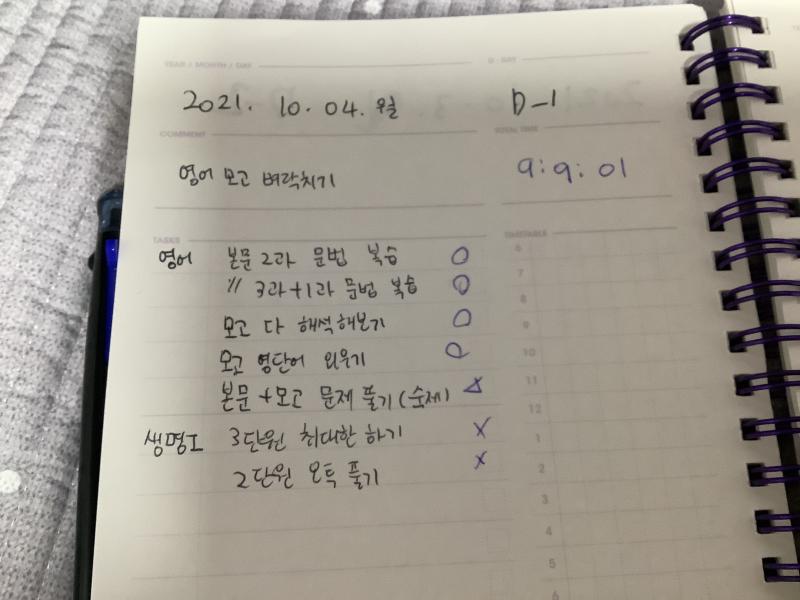 YEAR / MONTH / DAY
D - DAY
2021. 10. 04. 월
D-1
COMMENT
TOTAL TIME
영어 모고 벼락치기
9:9:01
TASKS
TIMETABLE
영어 본문2과 문법 복습 O
〃 3과+1과 문법 복습 O
모고 다 해석해보기 O
모고 영단어 외우기 O
본문+모고 문제 풀기(숙제) △
생명I 3단원 최대한 하기 X
2단원 오특 풀기 X
6
7
8
9
10
11
12
1
2
3
4
5
6